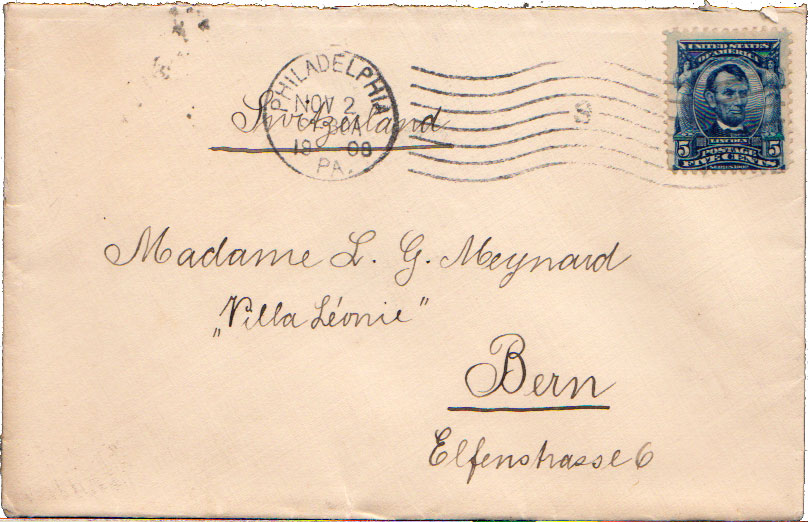 PHILADELPHIA
NOV 2
1908
PA.
S
UNITED STATES
OF AMERICA
LINCOLN
5 POSTAGE 5
FIVE CENTS
SERIES 1902
Switzerland
Madame L. G. Meynard
„Villa Léonie"
Bern
Elfenstrasse 6